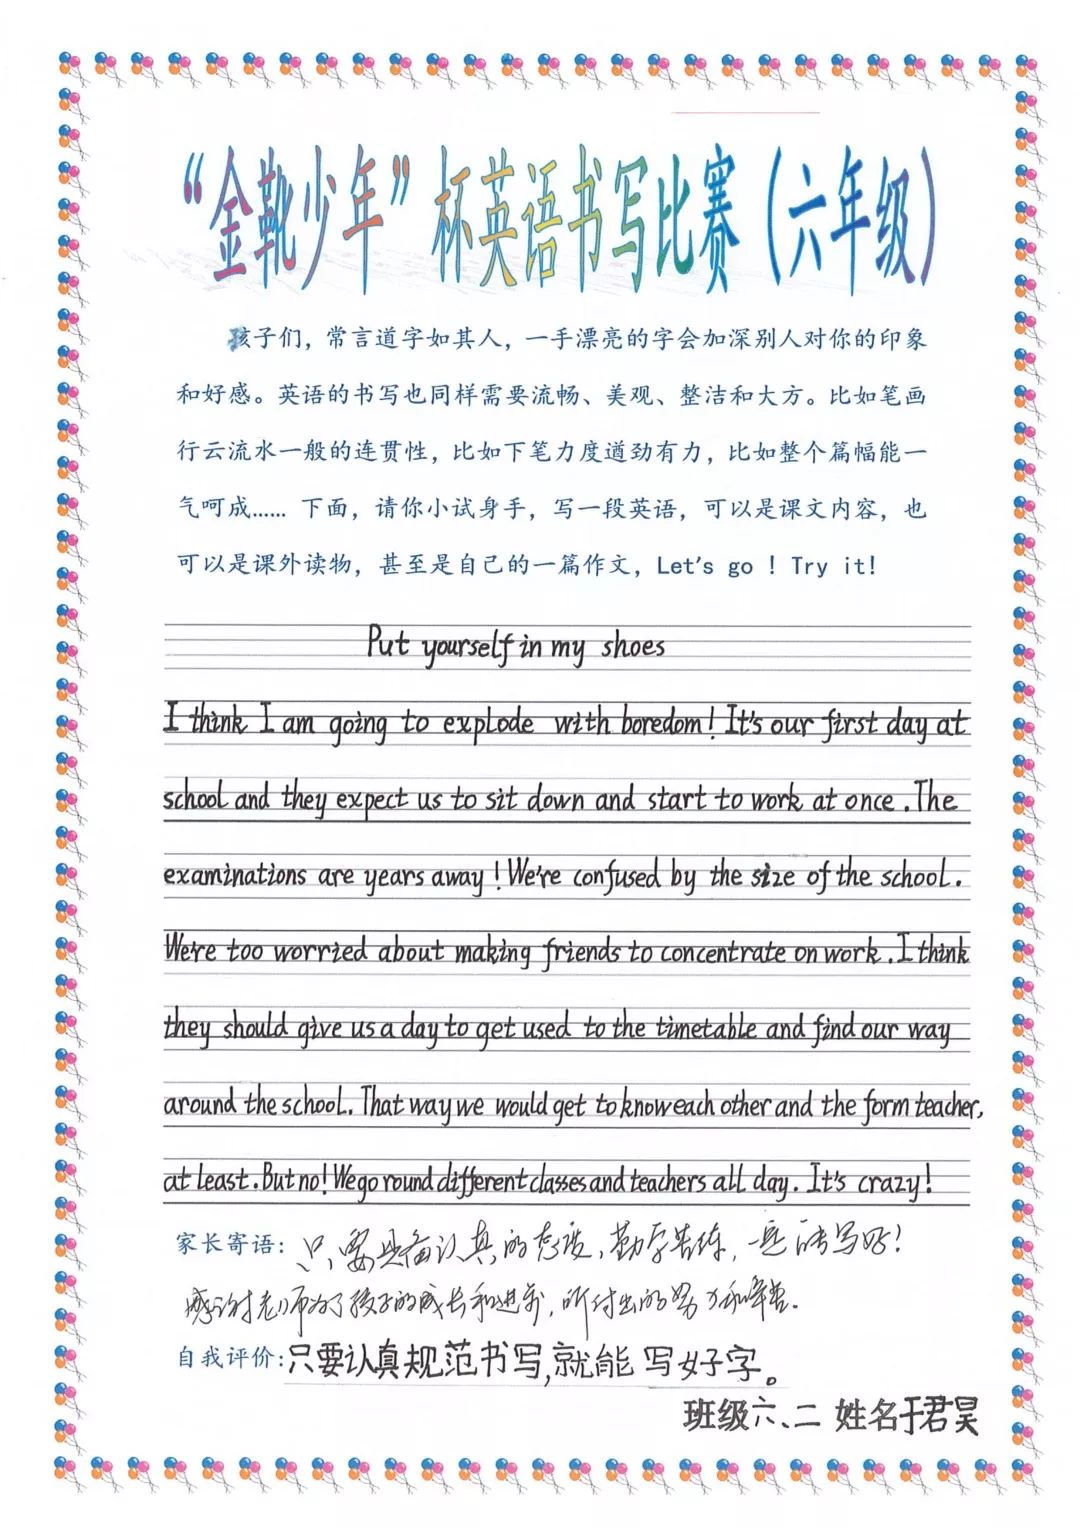 “金靴少年”杯英语书写比赛（六年级）
孩子们，常言道字如其人，一手漂亮的字会加深别人对你的印象
和好感。英语的书写也同样需要流畅、美观、整洁和大方。比如笔画
行云流水一般的连贯性，比如下笔力度道劲有力，比如整个篇幅能一
气呵成…… 下面，请你小试身手，写一段英语，可以是课文内容，也
可以是课外读物，甚至是自己的一篇作文，Let's go！Try it!
Put yourself in my shoes
I think I am going to explode with boredom! It's our first day at
school and they expect us to sit down and start to work at once. The
examinations are years away! We're confused by the size of the school.
We're too worried about making friends to concentrate on work. I think
they should give us a day to get used to the timetable and find our way
around the school. That way we would get to know each other and the form teacher,
at least. But no! We go round different classes and teachers all day. It's crazy!
家长寄语：只要具备认真的态度，勤学苦练，一定能写好！
感谢老师为了孩子的成长和进步，所付出的努力和辛苦.
自我评价：只要认真规范书写,就能写好字。
班级六、二 姓名于君昊